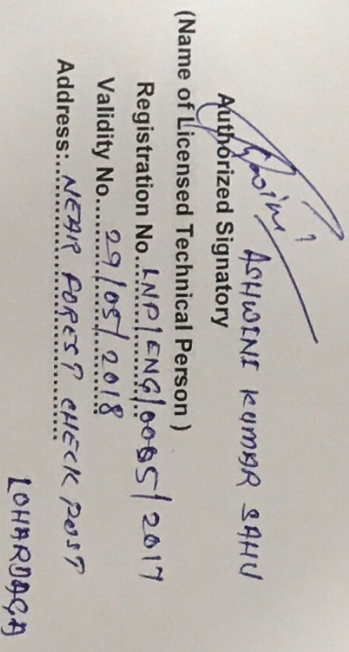 Ashwini
ASHWINI KUMAR SAHU
Authorized Signatory
(Name of Licensed Technical Person )
Registration No...LNP/ENG/0005/2017
Validity No...29/05/2018
Address:...NEAR FOREST CHECK POST
LOHARDAGA